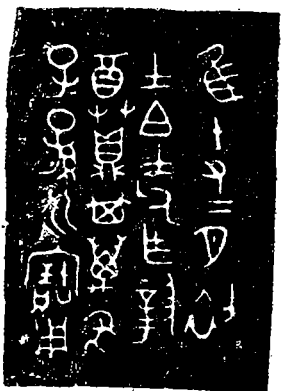 隹十又二月初
吉白吉父乍毅
尊鼎其萬年
子子孫孫永寶用